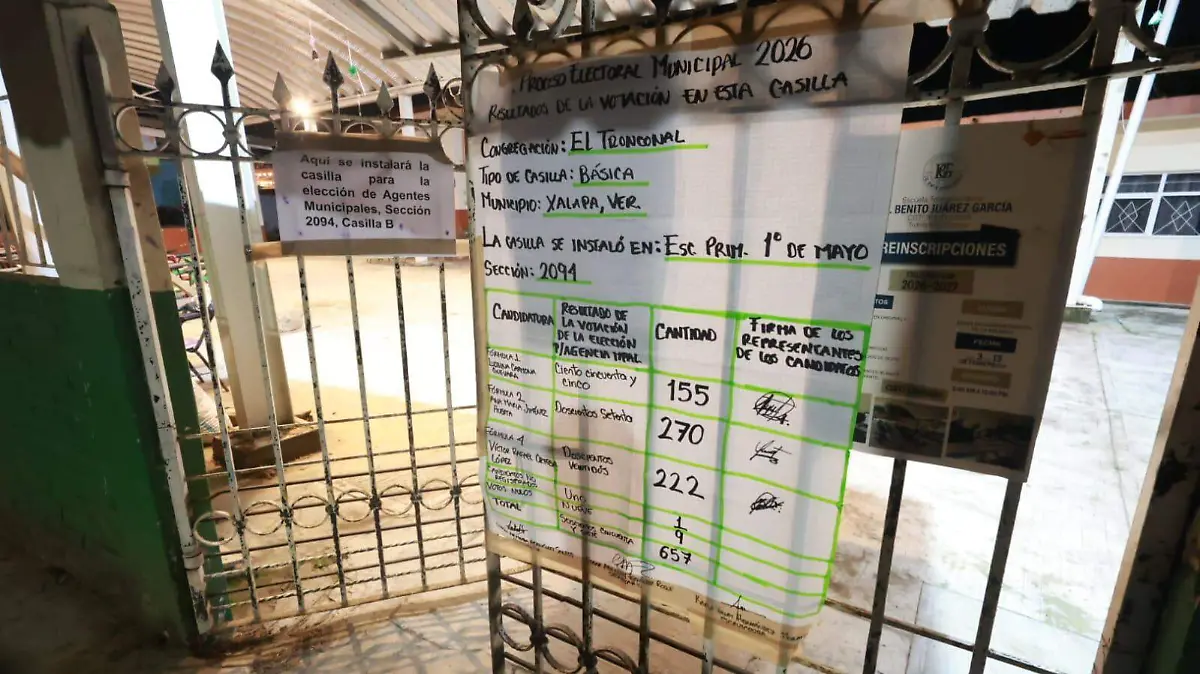 Aquí se instalará la
casilla para la
elección de Agentes
Municipales, Sección
2094, Casilla B
PROCESO ELECTORAL MUNICIPAL 2026
RESULTADOS DE LA VOTACIÓN EN ESTA CASILLA
CONGREGACIÓN: EL TRONCONAL
TIPO DE CASILLA: BÁSICA
MUNICIPIO: XALAPA, VER.
LA CASILLA SE INSTALÓ EN: ESC. PRIM. 1º DE MAYO
SECCIÓN: 2094
CANDIDATURA
RESULTADO DE
LA VOTACIÓN
DE LA ELECCIÓN
P/AGENCIA MPAL
CANTIDAD
FIRMA DE LOS
REPRESENTANTES
DE LOS CANDIDATOS
FÓRMULA 1
Ciento cincuenta y
cinco
155
FÓRMULA 2
ANA MARÍA JIMÉNEZ
Doscientos Setenta
270
FÓRMULA 4
VÍCTOR RAFAEL
LÓPEZ
Doscientos
222
CANDIDATOS NO
REGISTRADOS
Uno
1
VOTOS NULOS
NUEVE
9
TOTAL
657
BENITO JUÁREZ GARCÍA
REINSCRIPCIONES
2026-2027